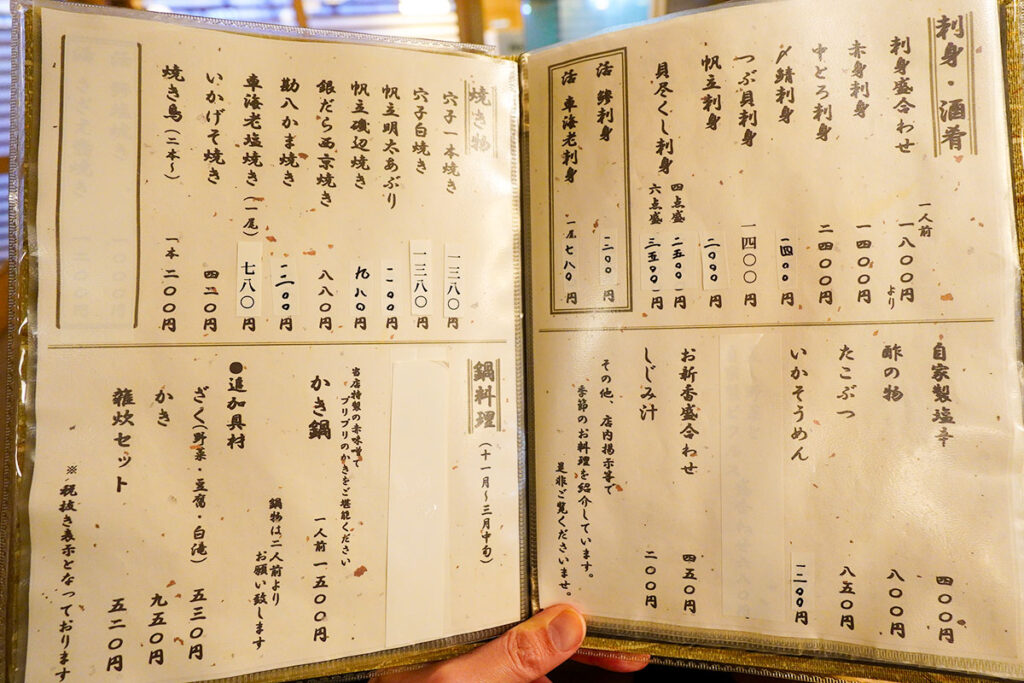 刺身・酒肴
刺身盛合わせ 一人前 一八〇〇円より
赤身刺身 一四〇〇円
中とろ刺身 二四〇〇円
〆鯖刺身 一四〇〇円
つぶ貝刺身 一四〇〇円
帆立刺身 二〇〇〇円
貝尽くし刺身 四点盛 二五〇〇円
六点盛 三五〇〇円
活 鯵刺身
活 車海老刺身 一尾 七八〇円
自家製塩辛 四〇〇円
酢の物 八〇〇円
たこぶつ 八五〇円
いかそうめん
お新香盛合わせ 四五〇円
しじみ汁 二〇〇円
その他、店内掲示等で
季節のお料理を紹介しています。
是非ご覧くださいませ。
焼き物
穴子一本焼き 一三八〇円
穴子白焼き 一三八〇円
帆立明太あぶり
帆立磯辺焼き 九八〇円
銀だら西京焼き 八八〇円
勘八かま焼き
車海老塩焼き(一尾) 七八〇円
いかげそ焼き 四二〇円
焼き鳥(二本〜) 一本 二〇〇円
鍋料理(十一月〜三月中旬)
かき鍋 一人前 一五〇〇円
当店特製の赤味噌で
プリプリのかきをご堪能ください
鍋物は二人前より
お願い致します
●追加具材
ざく(野菜・豆腐・白滝) 五三〇円
かき 九五〇円
雑炊セット 五二〇円
※税抜き表示となっております